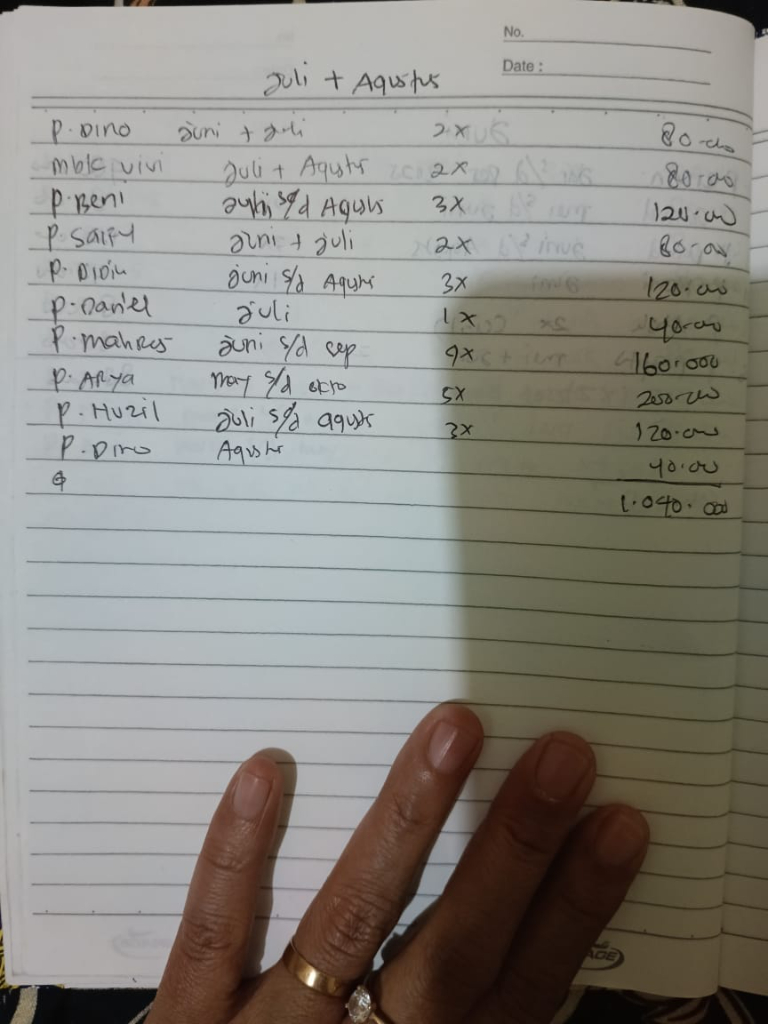 No.
Date :
Juli + Agustus
P. Dino Juni + Juli 2x 80.000
mbk vivi Juli + Agusts 2x 80.000
P. Beni s/d Agusts 3x 120.000
P. Saify Juni + Juli 2x 80.000
P. Didin Juni s/d Agusts 3x 120.000
P. Daniel Juli 1x 40.000
P. Mahros Juni s/d sep 4x 160.000
P. Arya may s/d okto 5x 200.000
P. Huzil Juli s/d agusts 3x 120.000
P. Dino Agusts 40.000
1.040.000